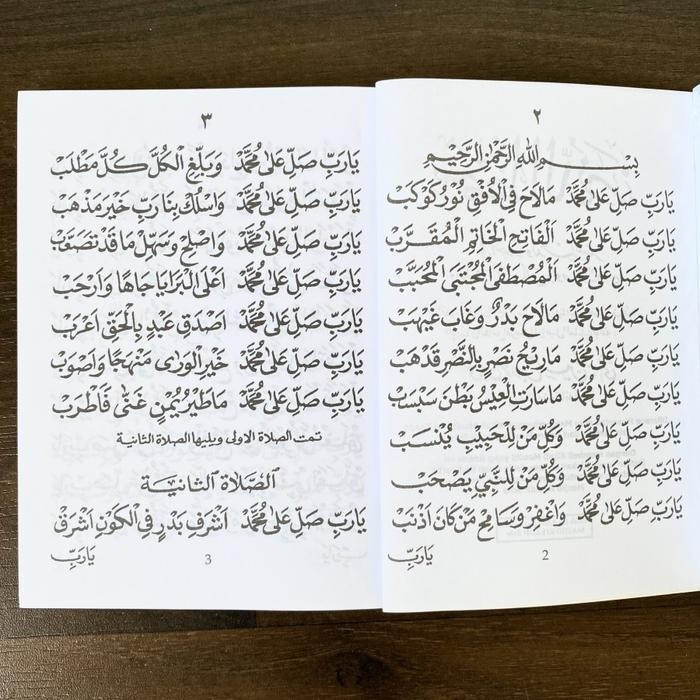 ٢
بِسْــمِ اللهِ الرَّحْمٰنِ الرَّحِيْمِ
يَارَبِّ صَلِّ عَلٰى مُحَمَّدْ مَالَاحَ فِي الْاُفْقِ نُوْرُ كَوْكَبْ
يَارَبِّ صَلِّ عَلٰى مُحَمَّدْ اَلْفَاتِحِ الْخَاتِمِ الْمُقَرَّبْ
يَارَبِّ صَلِّ عَلٰى مُحَمَّدْ اَلْمُصْطَفَى الْمُجْتَبَى الْمُحَبَّبْ
يَارَبِّ صَلِّ عَلٰى مُحَمَّدْ مَالَاحَ بَدْرٌ وَغَابَ غَيْهَبْ
يَارَبِّ صَلِّ عَلٰى مُحَمَّدْ مَارِيْحُ نَصْرٍ بِالنَّصْرِ قَدْهَبْ
يَارَبِّ صَلِّ عَلٰى مُحَمَّدْ مَاسَارَتِ الْعِيْسُ بَطْنَ سَبْسَبْ
يَارَبِّ صَلِّ عَلٰى مُحَمَّدْ وَكُلِّ مَنْ لِلْحَبِيْبِ يُنْسَبْ
يَارَبِّ صَلِّ عَلٰى مُحَمَّدْ وَكُلِّ مَنْ لِلنَّبِيِّ يَصْحَبْ
يَارَبِّ صَلِّ عَلٰى مُحَمَّدْ وَاغْفِرْ وَسَامِحْ مَنْ كَانَ اَذْنَبْ
يَارَبِّ
2
٣
يَارَبِّ صَلِّ عَلٰى مُحَمَّدْ وَبَلِّغِ الْكُلَّ كُلَّ مَطْلَبْ
يَارَبِّ صَلِّ عَلٰى مُحَمَّدْ وَاسْلُكْ بِنَا رَبِّ خَيْرَ مَذْهَبْ
يَارَبِّ صَلِّ عَلٰى مُحَمَّدْ وَاصْلِحْ وَسَهِّلْ مَا قَدْ تَصَعَّبْ
يَارَبِّ صَلِّ عَلٰى مُحَمَّدْ اَعْلَى الْبَرَايَا جَاهًا وَاَرْحَبْ
يَارَبِّ صَلِّ عَلٰى مُحَمَّدْ اَصْدَقِ عَبْدٍ بِالْحَقِّ اَعْرَبْ
يَارَبِّ صَلِّ عَلٰى مُحَمَّدْ خَيْرِ الْوَرٰى مَنْهَجًا وَاَصْوَبْ
يَارَبِّ صَلِّ عَلٰى مُحَمَّدْ مَاطَيْرُ يُمْنٍ غَنّٰى فَاَطْرَبْ
تمت الصلاة الاولى ويليها الصلاة الثانية
اَلصَّلَاةُ الثَّانِيَةُ
يَارَبِّ صَلِّ عَلٰى مُحَمَّدْ اَشْرَفِ بَدْرٍ فِي الْكَوْنِ اَشْرَقْ
يَارَبِّ
3